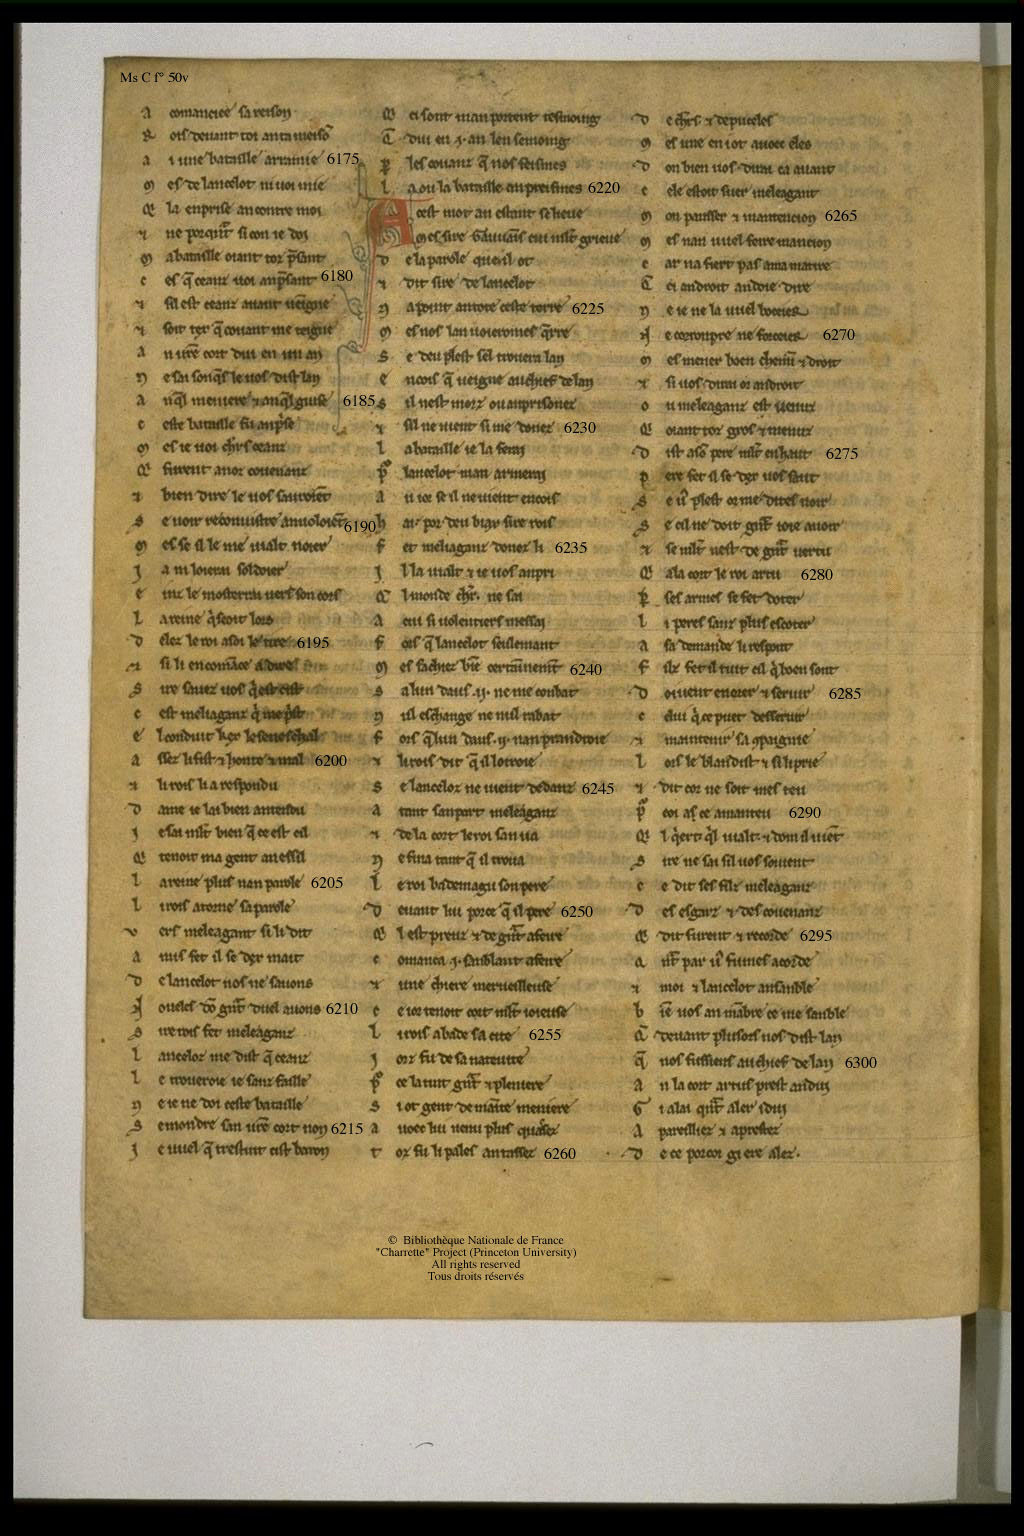 Ms C f° 50v
A comanciee sa reison
R ois deuant toi an ta meisō
a i une bataille arramie 6175
m es de lancelot ni uoi mie
Q la enprise an contre moi
⁊ ne porqu̅t si con ie doi
m a bataille oiant toz p̃sant
c es q̃ ceanz uoi anp̃sant 6180
⁊ sil est ceanz auant ueigne
⁊ soit tex q̃ couant me teigne
a n ur̃e cort dui en un an
n e sai sonq̃s le uos dist lan
a nq̃l meniere ⁊ anq̃l guise 6185
c este bataille fu anp̃se
m es ie uoi chr̃s ceanz
Q furent a noz couenanz
⁊ bien dire le uos sauroiēt
s e uoir reconuistre an uoloiēt 6190
m es se il le me uialt noier
J a ni loierai soldoier
e inz le mosterrai uers son cors
L a reine q̃ seoit lors
D elez le roi a soi le tire 6195
⁊ si li encomāce a dire
S ire sauez uos q̃ est cist
c est meliaganz q̃ me p̃st
e l conduit kex le seneschal
a ssez li fist ⁊ honte ⁊ mal 6200
⁊ li rois li a respondu
D ame ie lai bien antendu
J e sai ml̃t bien q̃ ce est cil
Q tenoit ma gent an essil
L a reine plus nan parole 6205
L i rois atorne sa parole
v ers meleagant si li dit
A mis fet il se dex mait
D e lancelot nos ne sauons
N oueles dō gr̃t duel auons 6210
S ire rois fet meleaganz
L anceloz me dist q̃ ceanz
L e troueroie ie sanz faille
N e ie ne doi ceste bataille
S emondre san ur̃e cort non 6215
J e uuel q̃ trestuit cist baron
Q ci sont man portent tesmoing
C dui en .i. an len semoing
P les couanz q̃ nos feismes
L a ou la bataille an preismes 6220
A cest mot an estant se lieue
Mes sire Gauuains cui ml̃t grieue
D e la parole que il ot
⁊ dit sire de lancelot
N a point an tote ceste terre 6225
M es nos lan uoieromes q̃rre
S e deu plest sel trouera lan
E ncois q̃ ueigne au chief de lan
S il nest morz ou anprisonez
⁊ sil ne uient si me donez 6230
L a bataille ie la ferai
P̃ lancelot man armerai
A u ior se il ne uient encois
h ai por deu biax sire rois
F et meliaganz donez li 6235
J l la uialt ⁊ ie uos anpri
Q l monde chr̃. ne sai
A cui si uolentiers messai
F ors q̃ lancelot seulemant
M es sachiez biē certainnemt̃ 6240
S a lun daus .ij. ne me conbat
N ul eschange ne nul rabat
F ors q̃ lun daus .ij. nan prandroie
⁊ li rois dit q̃ il lotroie
S e lanceloz ne uient dedanz 6245
A tant sanpart meleaganz
⁊ de la cort le roi san ua
N e fina tant q̃ il troua
L e roi bademagu son pere
D euant lui porce q̃ il pere 6250
Q l est preuz ⁊ de gr̃t afeire
c omanca .i. sanblant a feire
⁊ une chiere merueilleuse
c e ior tenoit cort ml̃t ioieuse
L i rois a bade sa cite 6255
J orz fu de sa natiuite
P̃ ce la tint gr̃t ⁊ pleniere
S i ot gent de mainte meniere
A uoec lui uenu plus quassez
T oz fu li pales antassez 6260
D e chr̃s ⁊ de puceles
M es une en i ot auoec eles
D on bien uos dirai ca auant
C ele estoit suer meleagant
M on pansser ⁊ mantencion 6265
M es nan uuel feire mancion
C ar na fiert pas a ma matire
C ci androit an doie dire
N e ie ne la uuel bocier
N e corronpre ne forceier 6270
M es mener boen chemī ⁊ droit
⁊ si uos dirai or androit
O u meleaganz est uenuz
Q oiant toz gros ⁊ menuz
D ist a sō pere ml̃t en haut 6275
P ere fet il se dex uos saut
S e ũ plest or me dites uoir
S e cil ne doit gr̃t ioie auoir
⁊ se ml̃t nest de gr̃t uertu
Q a la cort le roi artu 6280
P ses armes se fet doter
L i peres sanz plus escoter
A sa demande li respont
F ilz fet il tuit cil q̃ boen sont
D oiuent enorer ⁊ seruir 6285
C elui q̃ ce puet desseruir
⁊ maintenir sa ꝯpaignie
L ors le blandist ⁊ si li prie
⁊ dit cor ne soit mes teu
P̃ coi a sesmeu 6290
Q l q̃ert q̃l uialt ⁊ dom il uiēt
S ire ne sai sil uos souient
C e dit ses filz meleaganz
D es esganz ⁊ des couenanz
Q dit furent ⁊ recorde 6295
Q ñt par ũ fumes acorde
⁊ moi ⁊ lancelot ansanble
b iē uos an mābre ce me sanble
Q̃ deuant plusors nos dist lan
Q̃ nos fussiens au chief de lan 6300
A n la cort artus prest andui
G i alai qñt aler i dui
A pareilliez ⁊ aprestez
D e ce porcoi gi ere alez.
© Bibliothèque Nationale de France
"Charrette" Project (Princeton University)
All rights reserved
Tous droits réservés